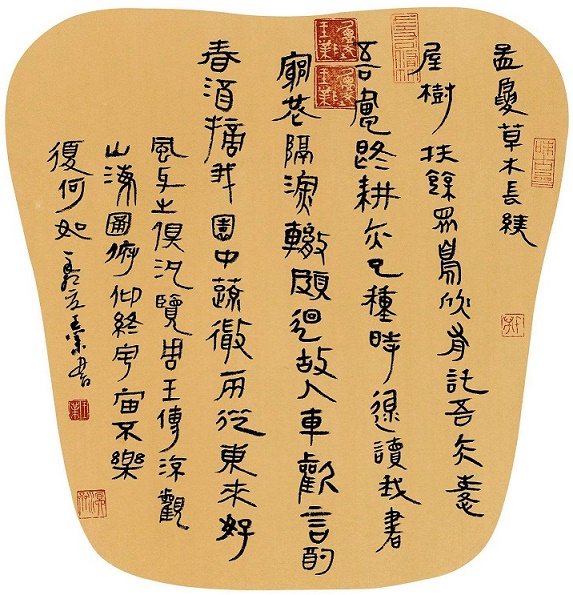 孟夏草木長繞
屋樹扶疎眾鳥欣有託吾亦愛
吾廬既耕亦已種時還讀我書
窮巷隔深轍頗迴故人車歡言酌
春酒摘我園中蔬微雨從東來好
風与之俱汎覽周王傳流觀
山海圖俯仰終宇宙不樂
復何如